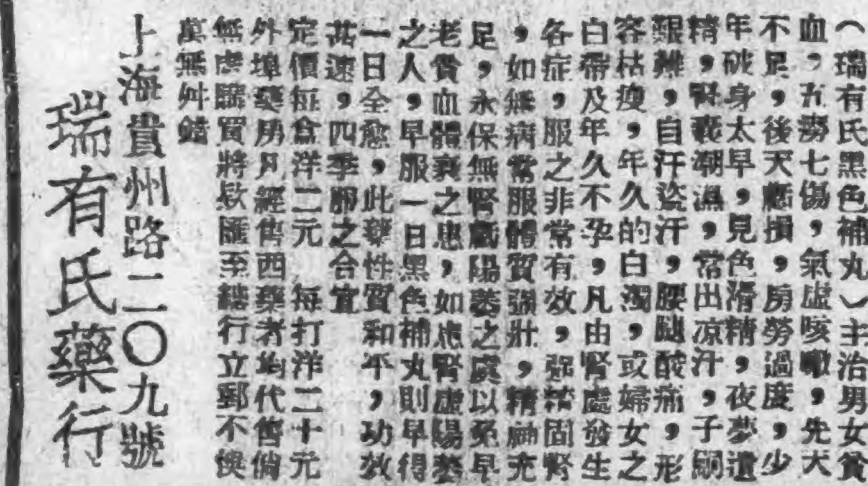 （瑞有氏黑色補丸）主治男女貧
血，五勞七傷，氣虛咳嗽，先天
不足，後天虧損，房勞過度，少
年破身太早，見色滑精，夜夢遺
精，腎囊潮濕，常出凉汗，子嗣
艱難，自汗盜汗，腰腿酸痛，形
容枯瘦，年久的白濁，或婦女之
白帶及年久不孕，凡由腎處發生
各症，服之非常有效，強精固腎
，如無病常服體質強壯，精神充
足，永保無腎虧陽萎之虞以免早
老貧血體衰之患，如患腎虛陽萎
之人，早服一日黑色補丸則早得
一日全愈，此藥性質和平，功效
甚速，四季服之合宜
定價每盒洋二元　每打洋二十元
外埠藥房凡經售西藥者均代售倘
無處購買將欵匯至總行立郵不悞
萬無舛錯
上海貴州路二〇九號
瑞有氏藥行